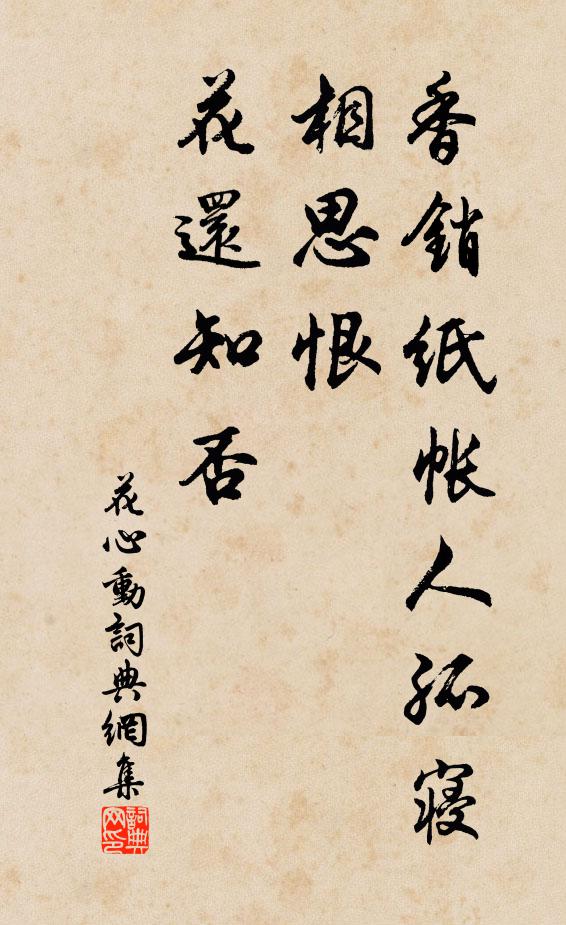 香銷紙帐人孤寝
相思恨
花還知否
花心動詞典網集
詞典
网印